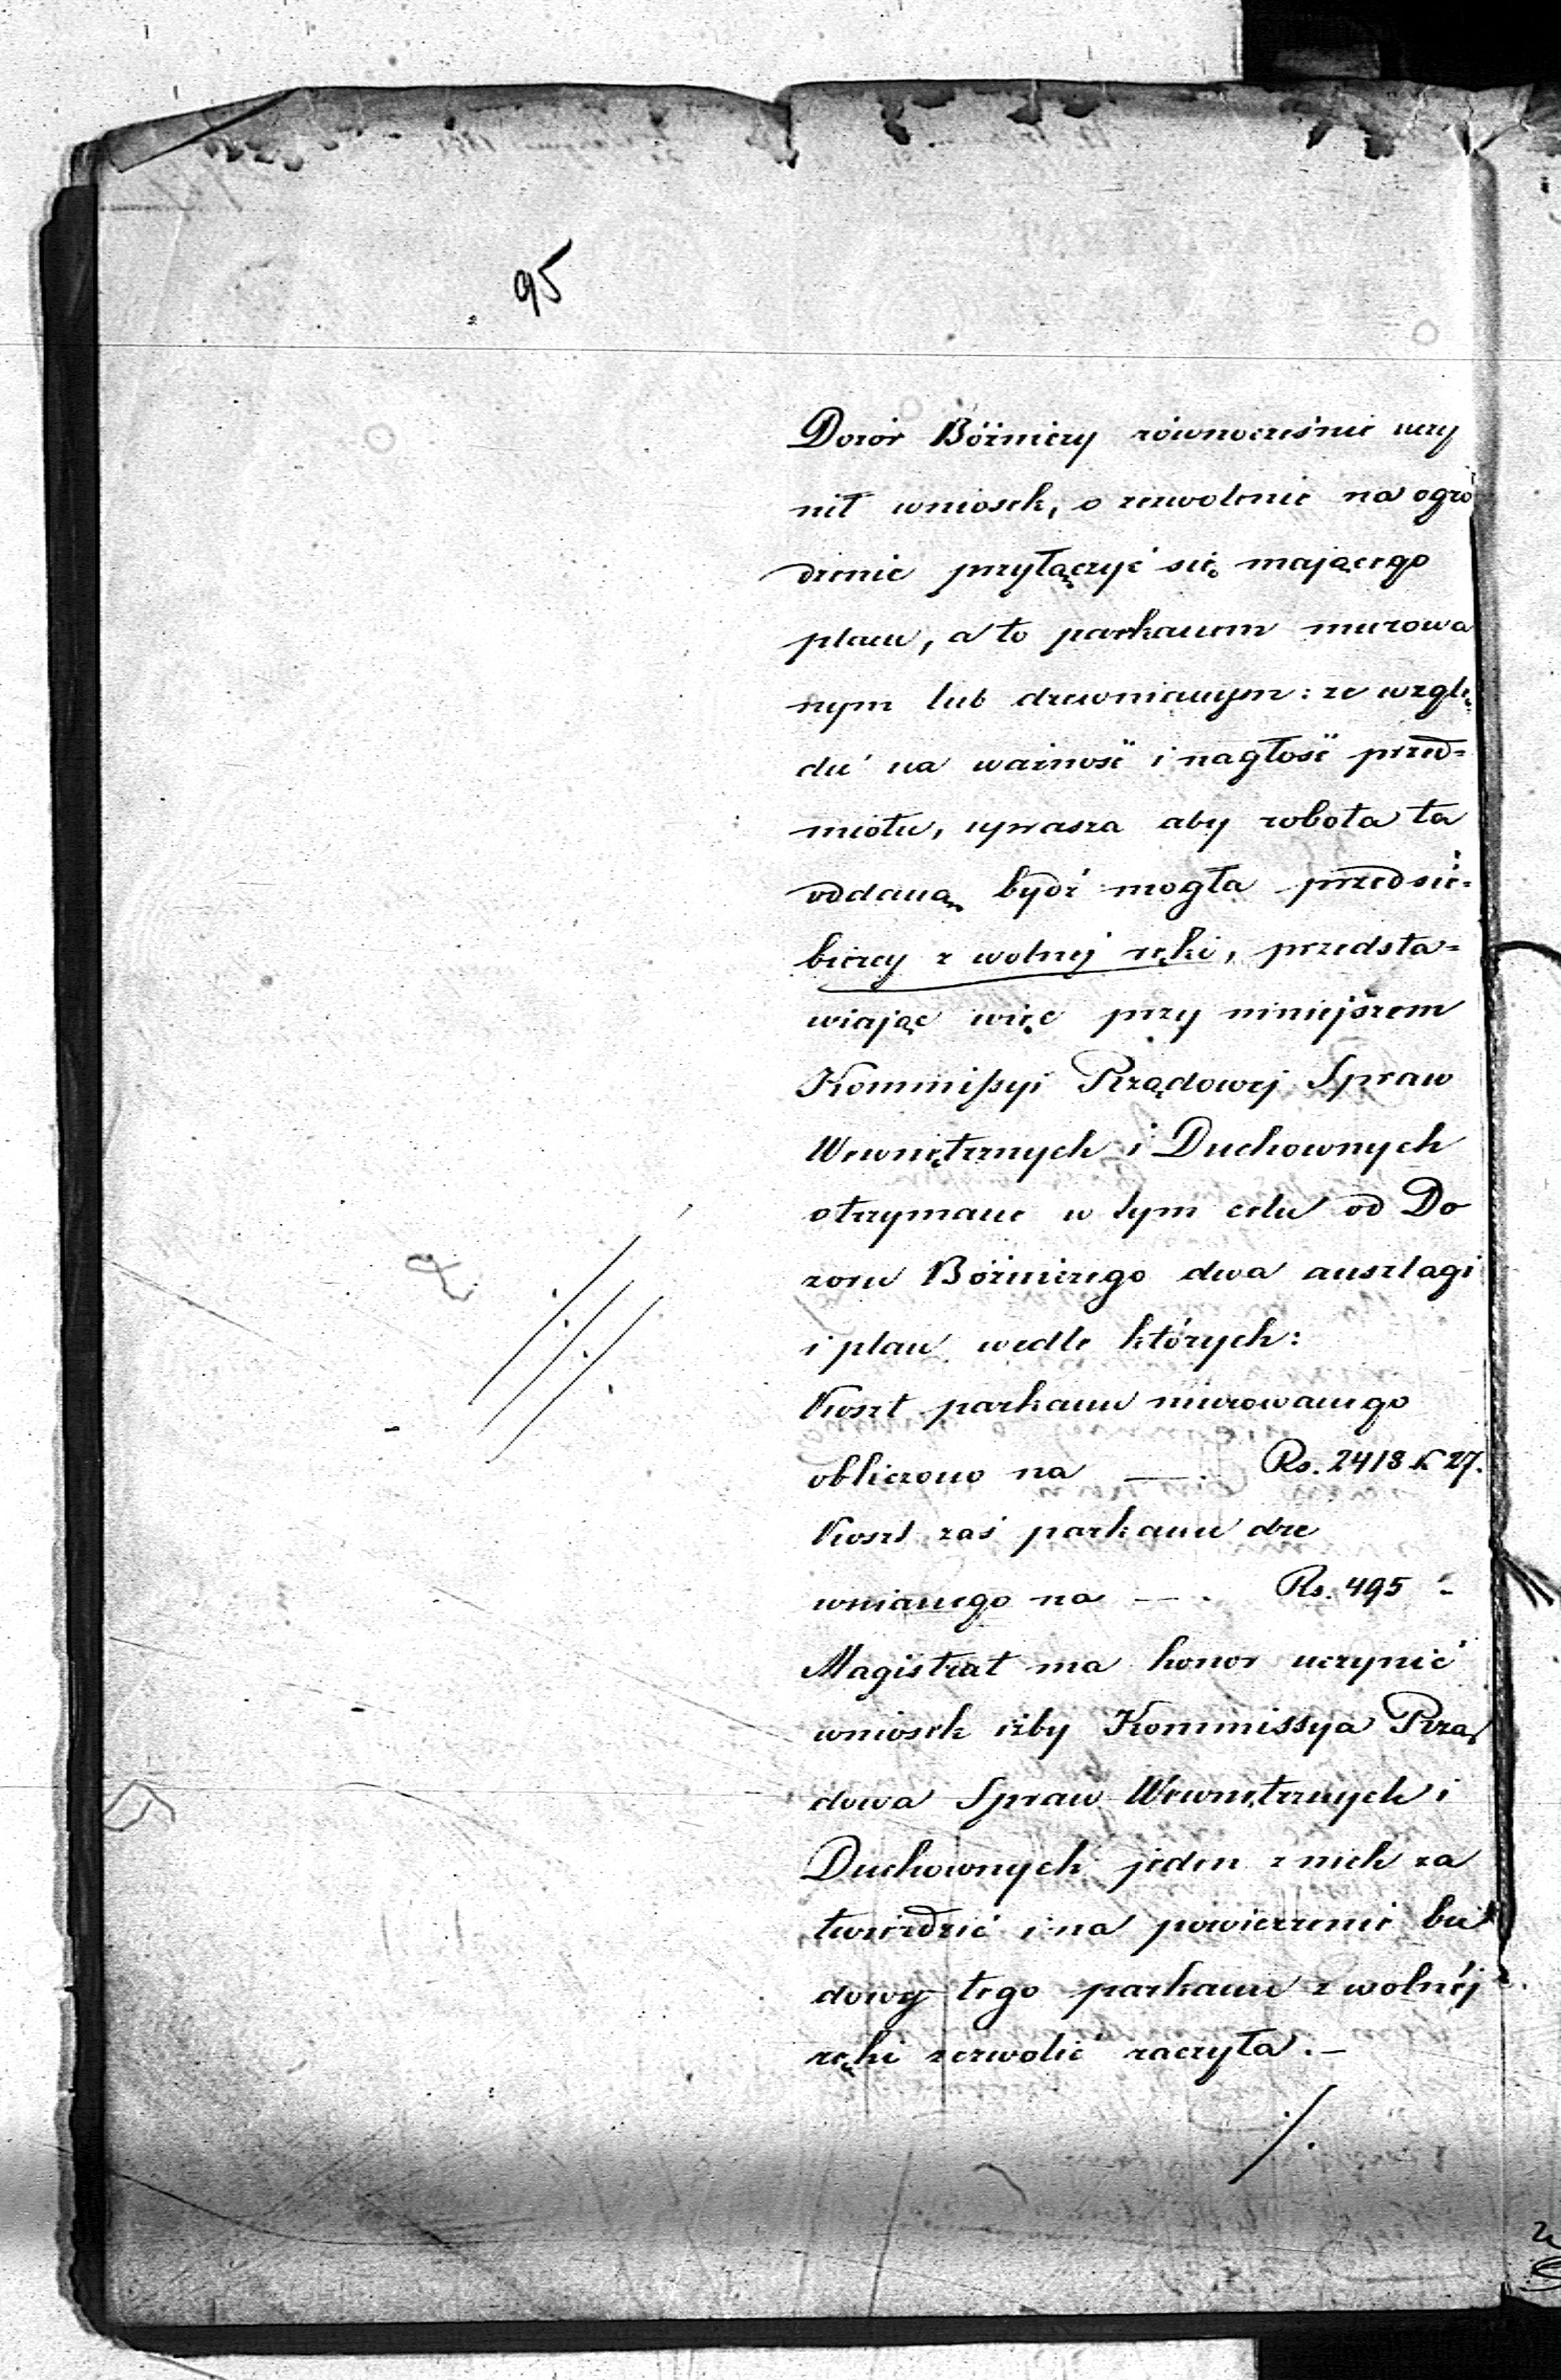 95
Dozór Bóżniczy równocześnie uczy
nił wniosek, o zezwolenie na ogro
dzenie przyłączyć się mającego
placu, a to parkanem murowa
nym lub drewnianym: ze wzglę
du na ważność i nagłość przed=
miotu, uprasza aby robota ta
oddaną bydź mogła przedsię=
biercy z wolnej ręki, przedsta=
wiając więc przy niniejszem
Kommissyi Rządowej Spraw
Wewnętrznych i Duchownych
otrzymane w tym celu od Do
zoru Bóżniczego dwa anszlagi
i plan wedle których:
Koszt parkanu murowanego
obliczono na — . Rs. 2418 k 27.
Koszt zaś parkanu dre
wnianego na — . Rs. 495 -
Magistrat ma honor uczynić
wniosek iżby Kommissya Rzą
dowa Spraw Wewnętrznych i
Duchownych jeden z nich za
twierdzić i na powierzenie bu
dowy tego parkanu z wolnéj
ręki zezwolić raczyła. –